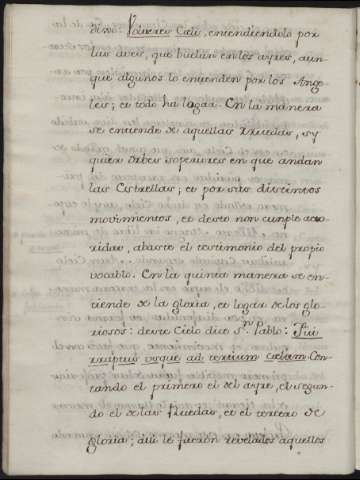 desso: Volucres Cæli, entendiendolo por
las aves, que buelan en los ayres, aun
que algunos lo entienden por los Ange
les; et todo ha logar. En la manera
se entiende de aquellas Ruedas, sy
quier Orbes soperiores en que andan
las Estrellas; et por sus distintos
movimientos, et desto non cumple ato
ridar, abaste el testimonio del propio
vocablo. En la quinta manera se en
tiende de la gloria, et logar de los glo
riosos: deste Cielo dice Sn. Pablo: Fui
rraptus usque ad tertium cælum Con
tando el primero el del ayre, el segun
do el de las Ruedas, et el tercero de
gloria; alli le fueron revelados aquellos